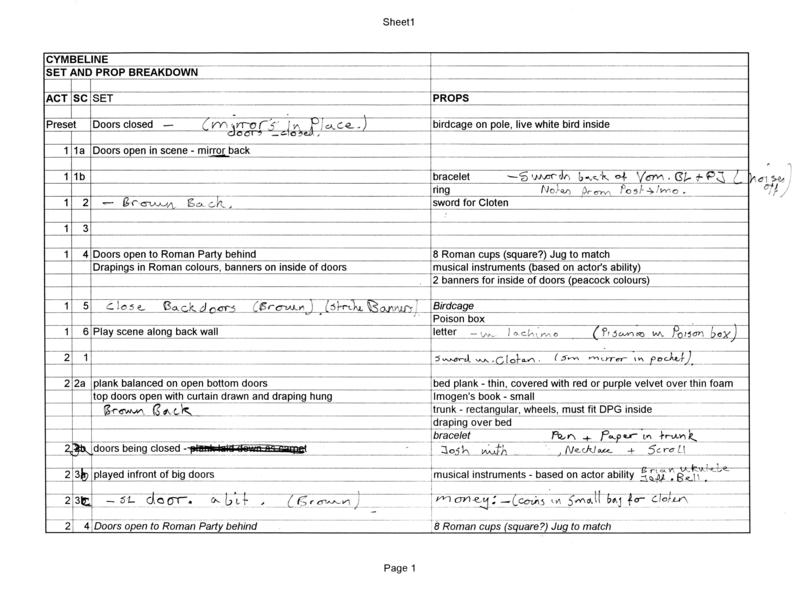 Sheet1
CYMBELINE
SET AND PROP BREAKDOWN
ACT SC SET PROPS
Preset Doors closed — (mirrors in Place.) birdcage on pole, live white bird inside
doors closed.
1 1a Doors open in scene - mirror back
1 1b bracelet - Swords back of Vom. BL + PJ (noises off)
ring Notes from Post → Imo.
1 2 - Brown Back. sword for Cloten
1 3
1 4 Doors open to Roman Party behind 8 Roman cups (square?) Jug to match
Drapings in Roman colours, banners on inside of doors musical instruments (based on actor's ability)
2 banners for inside of doors (peacock colours)
1 5 Close Backdoors (Brown) (strike Banners) Birdcage
Poison box
1 6 Play scene along back wall letter - w Iachimo (Pisanio w Poison box)
2 1 Sword w. Cloten. (sm mirror in pocket).
2 2a plank balanced on open bottom doors bed plank - thin, covered with red or purple velvet over thin foam
top doors open with curtain drawn and draping hung Imogen's book - small
Brown Back trunk - rectangular, wheels, must fit DPG inside
draping over bed
bracelet Pen + Paper in trunk
2 doors being closed - plank laid down as carpet Josh with , Necklace + Scroll
2 3b played infront of big doors musical instruments - based on actor ability Brian ukulele
Bell.
2 3c - SL door. a bit. (Brown) money: - (coins in small bag for Cloten
2 4 Doors open to Roman Party behind 8 Roman cups (square?) Jug to match
Page 1